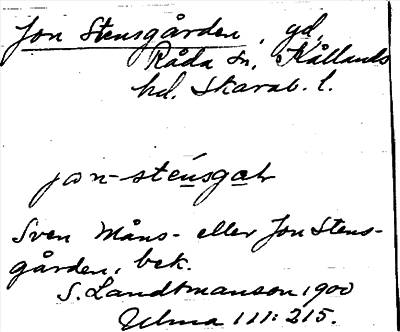 Jon Stensgården, gd,
Råda sn, Kållands
hd. Skarab. l.
jon-stensgaɫ
Sven Måns- eller Jon Stens-
gården, bek.
S. Landtmanson 1900
Ulma 111: 215.